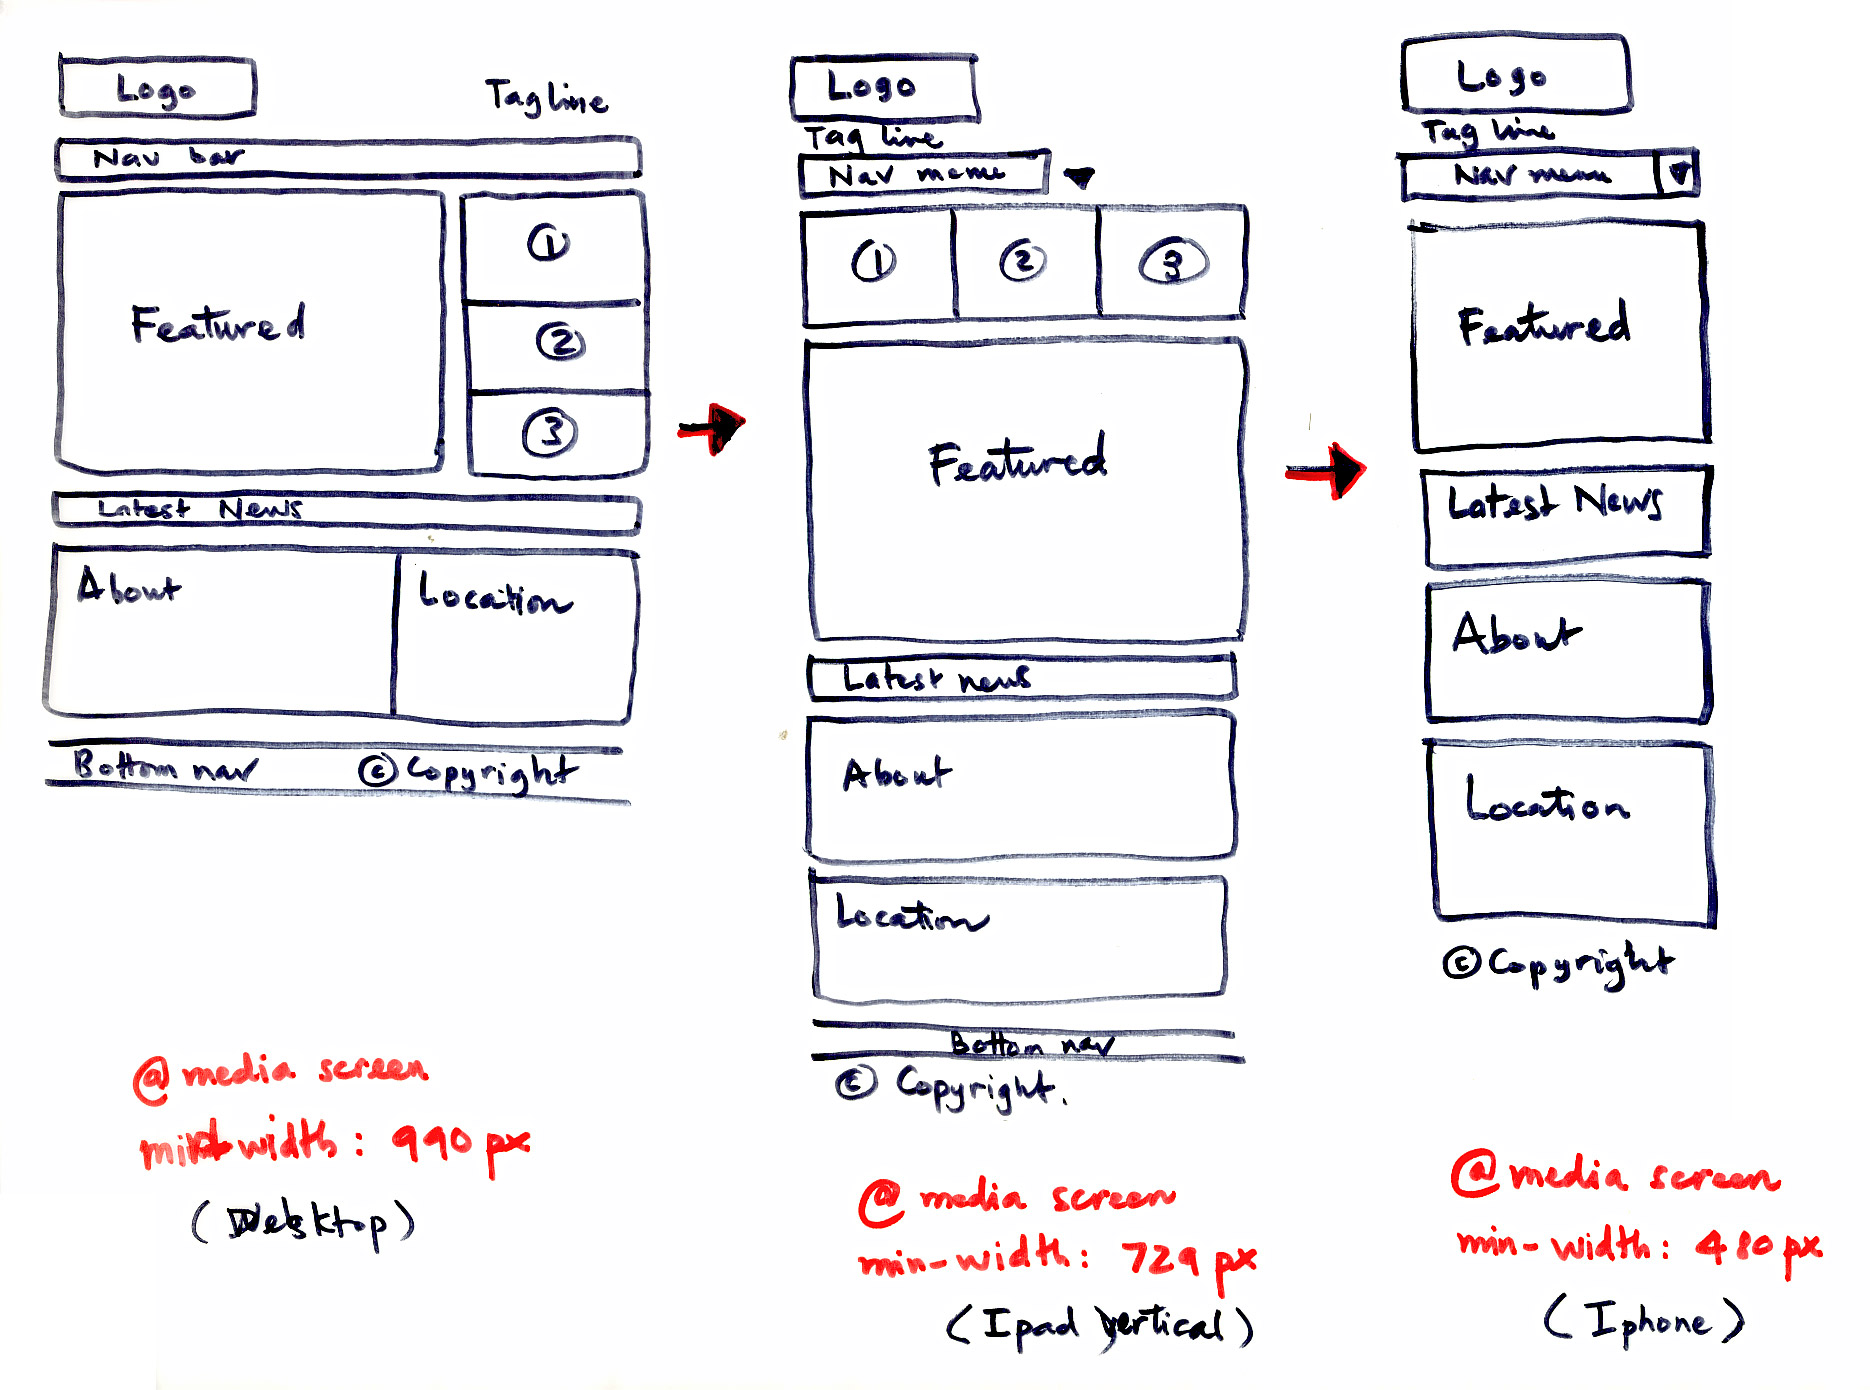 Logo
Tagline
Nav bar
Featured
1
2
3
Latest News
About
Location
Bottom nav © Copyright
@media screen
min-width: 990 px
(Desktop)
Logo
Tag line
Nav menu
1 2 3
Featured
Latest news
About
Location
Bottom nav
© Copyright.
@media screen
min-width: 729 px
(Ipad vertical)
Logo
Tag line
Nav menu
Featured
Latest News
About
Location
© Copyright
@media screen
min-width: 480 px
(Iphone)